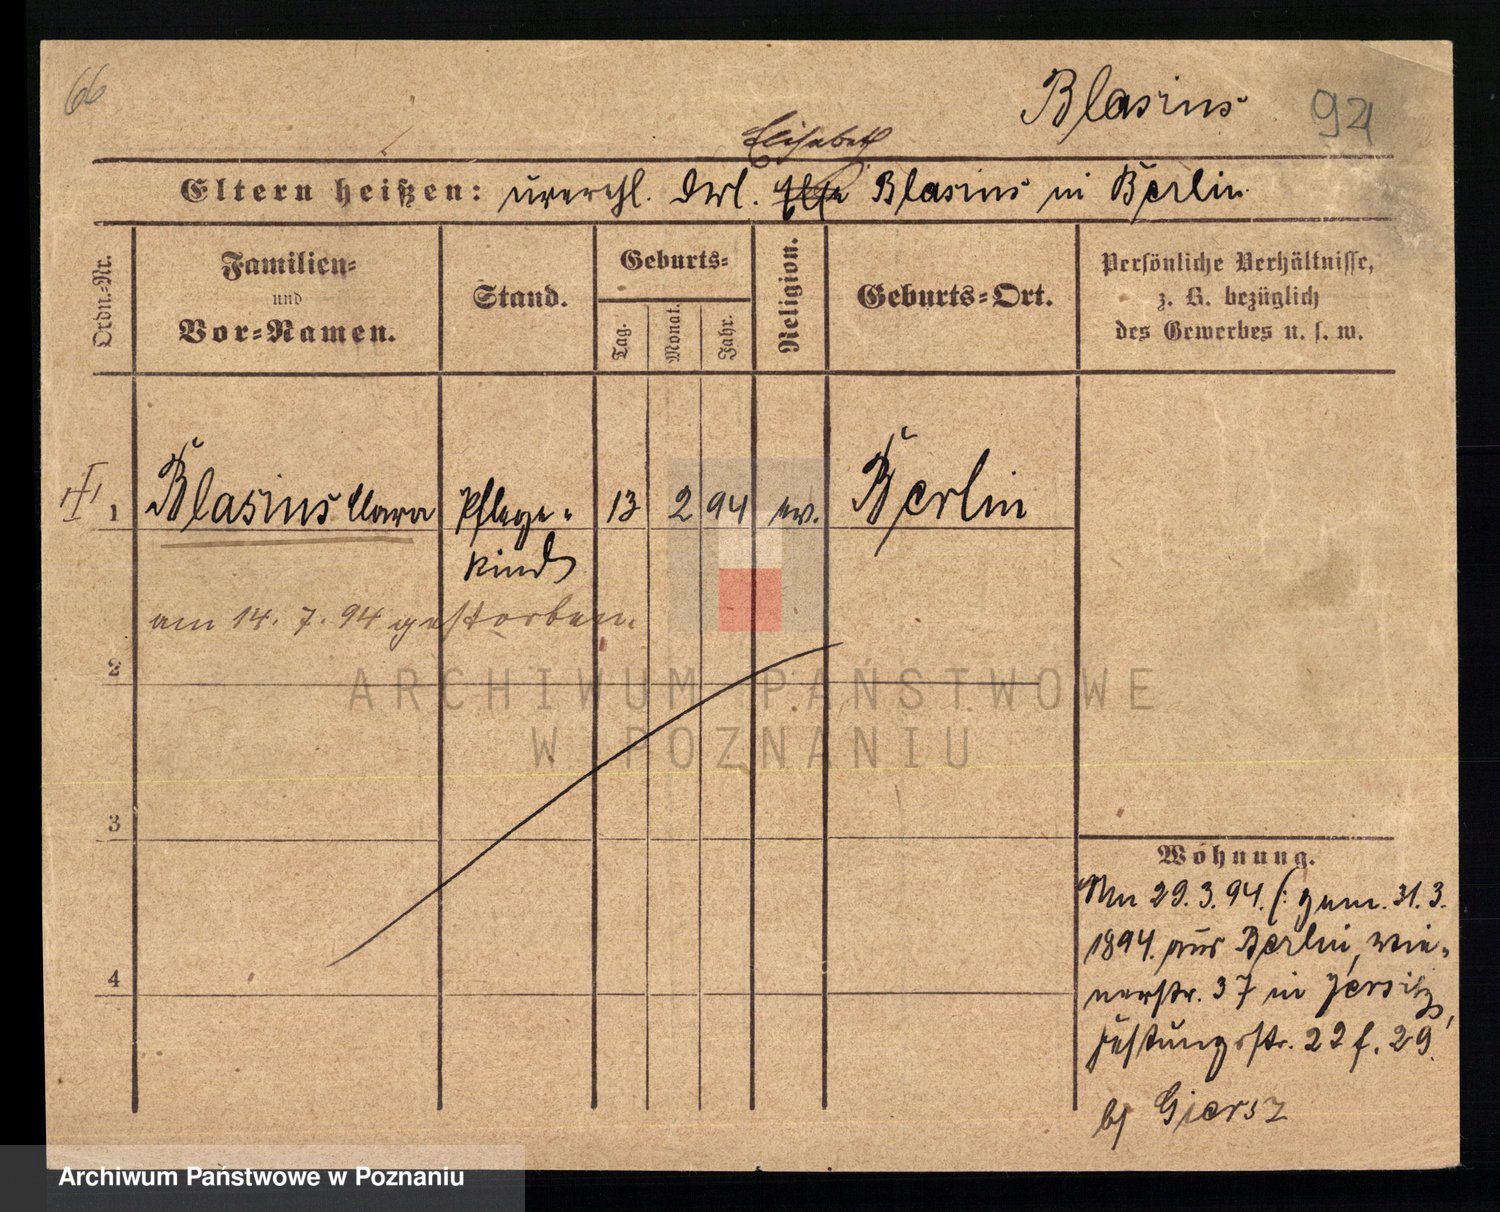 66
Blasius
94
Elisabeth
Eltern heißen: unverehl. Dvl. Blasius in Berlin
Ordn.-Nr.
Familien-
und
Vor-Namen.
Stand.
Geburts-
Tag.
Monat.
Jahr.
Religion.
Geburts-Ort.
Persönliche Verhältnisse,
z. B. bezüglich
des Gewerbes u. s. w.
1 Blasius Clara Pflege- 13 2 94 ev. Berlin
kind
am 14. 7. 94 gestorben.
2
ARCHIWUM PAŃSTWOWE
W POZNANIU
3
4
Wohnung.
An 29. 3. 94. (: gem. 31. 3.
1894. aus Berlin, Wie-
nerstr. 37 in Jersitz,
Festungsstr. 22 f. 29.
bj Giersz
Archiwum Państwowe w Poznaniu